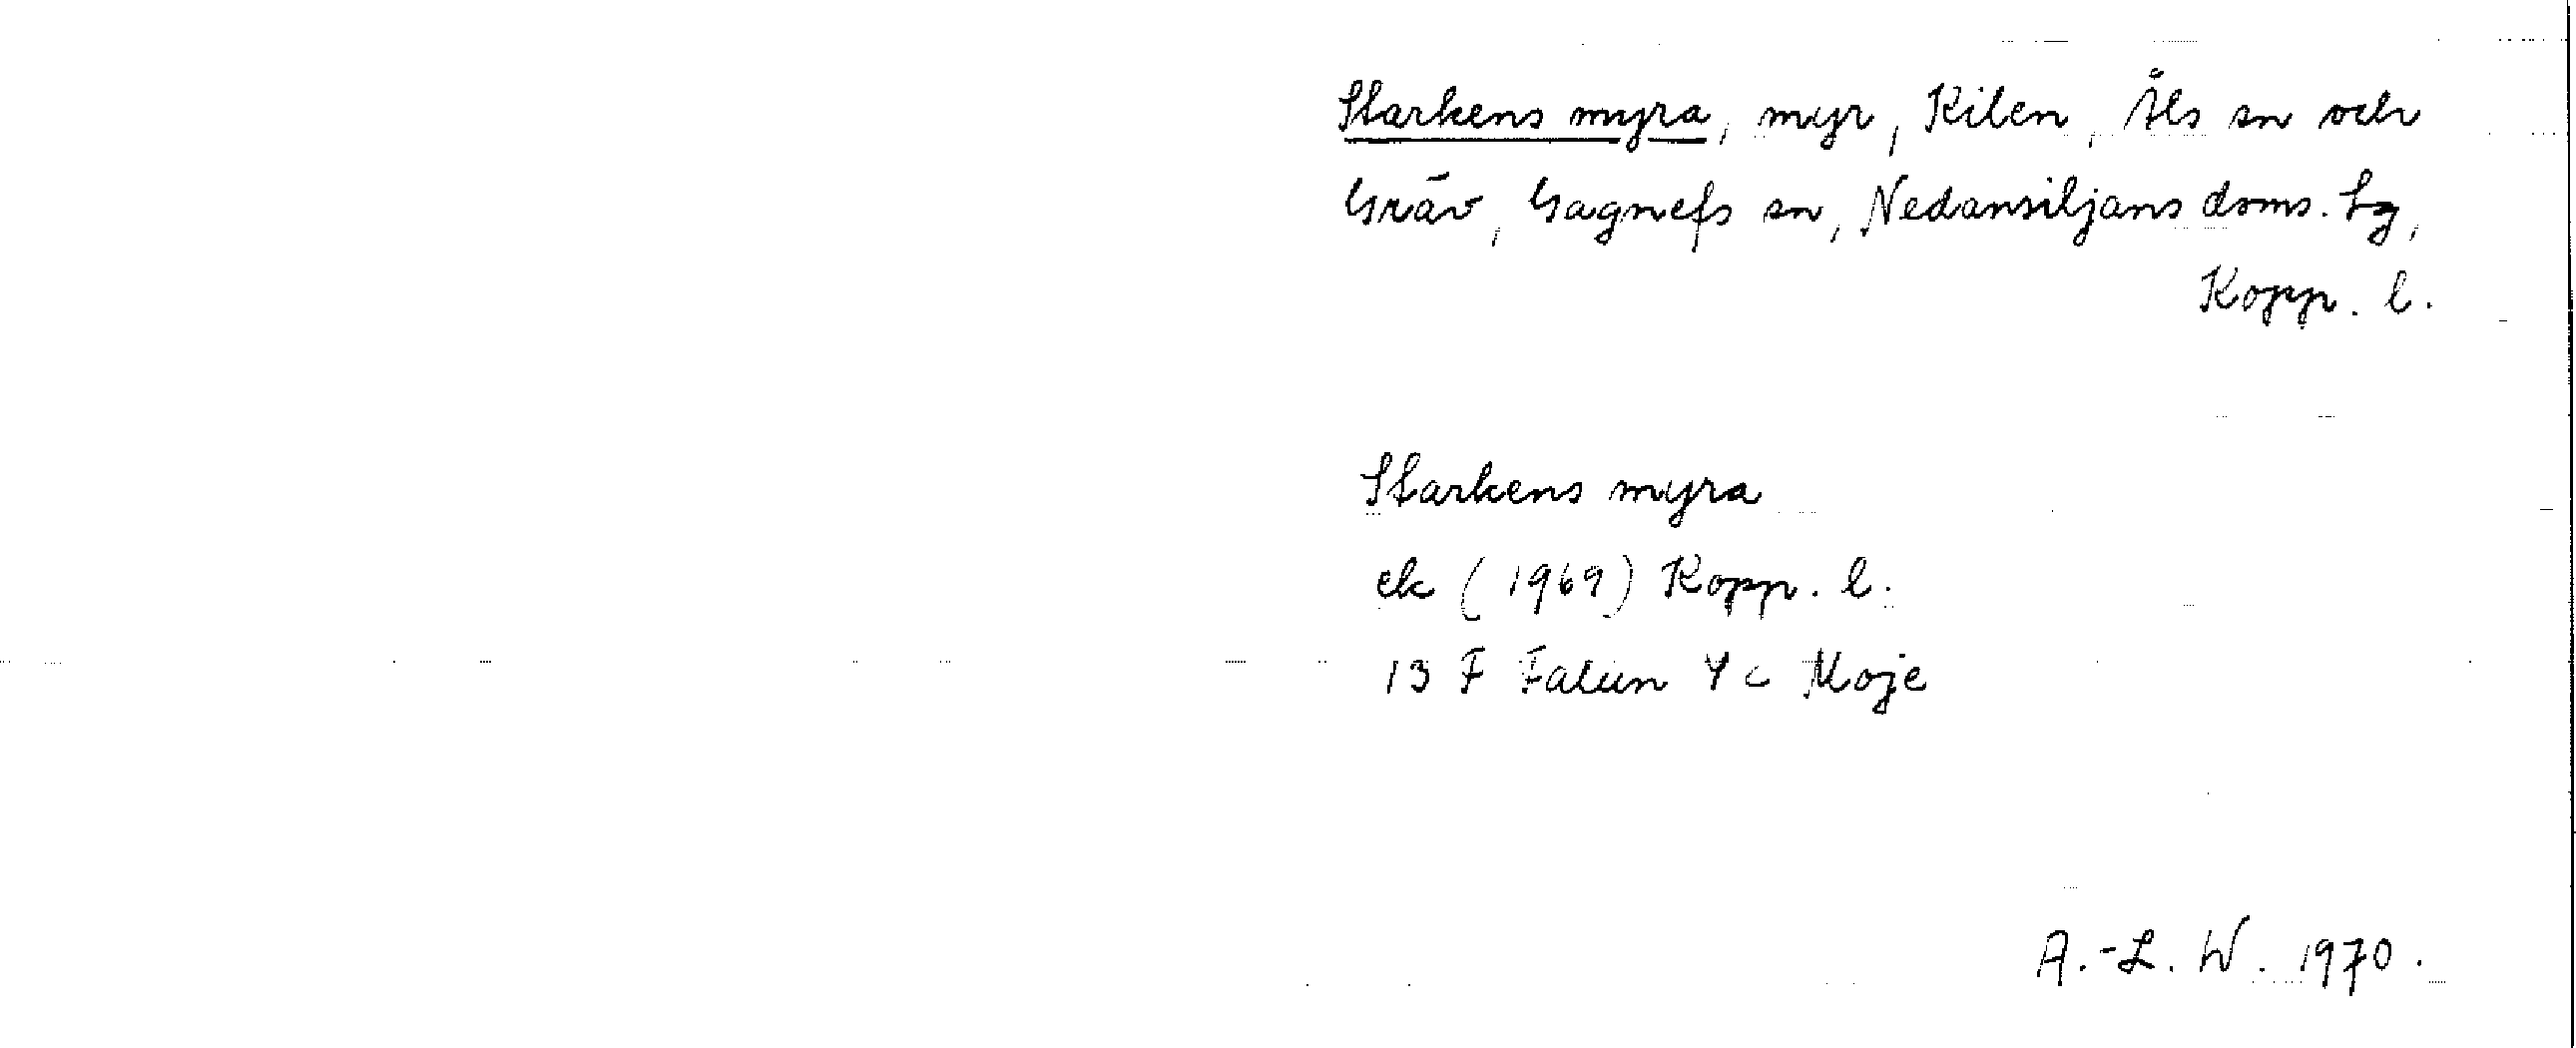 Starkens myra, myr, Kilen, Åls sn och
Gräv, Gagnefs sn, Nedansiljans doms. lg,
Kopp. l.
Starkens myra
ek (1969) Kopp. l.
13 F Falun 4 c Moje
A.-L. W. 1970.